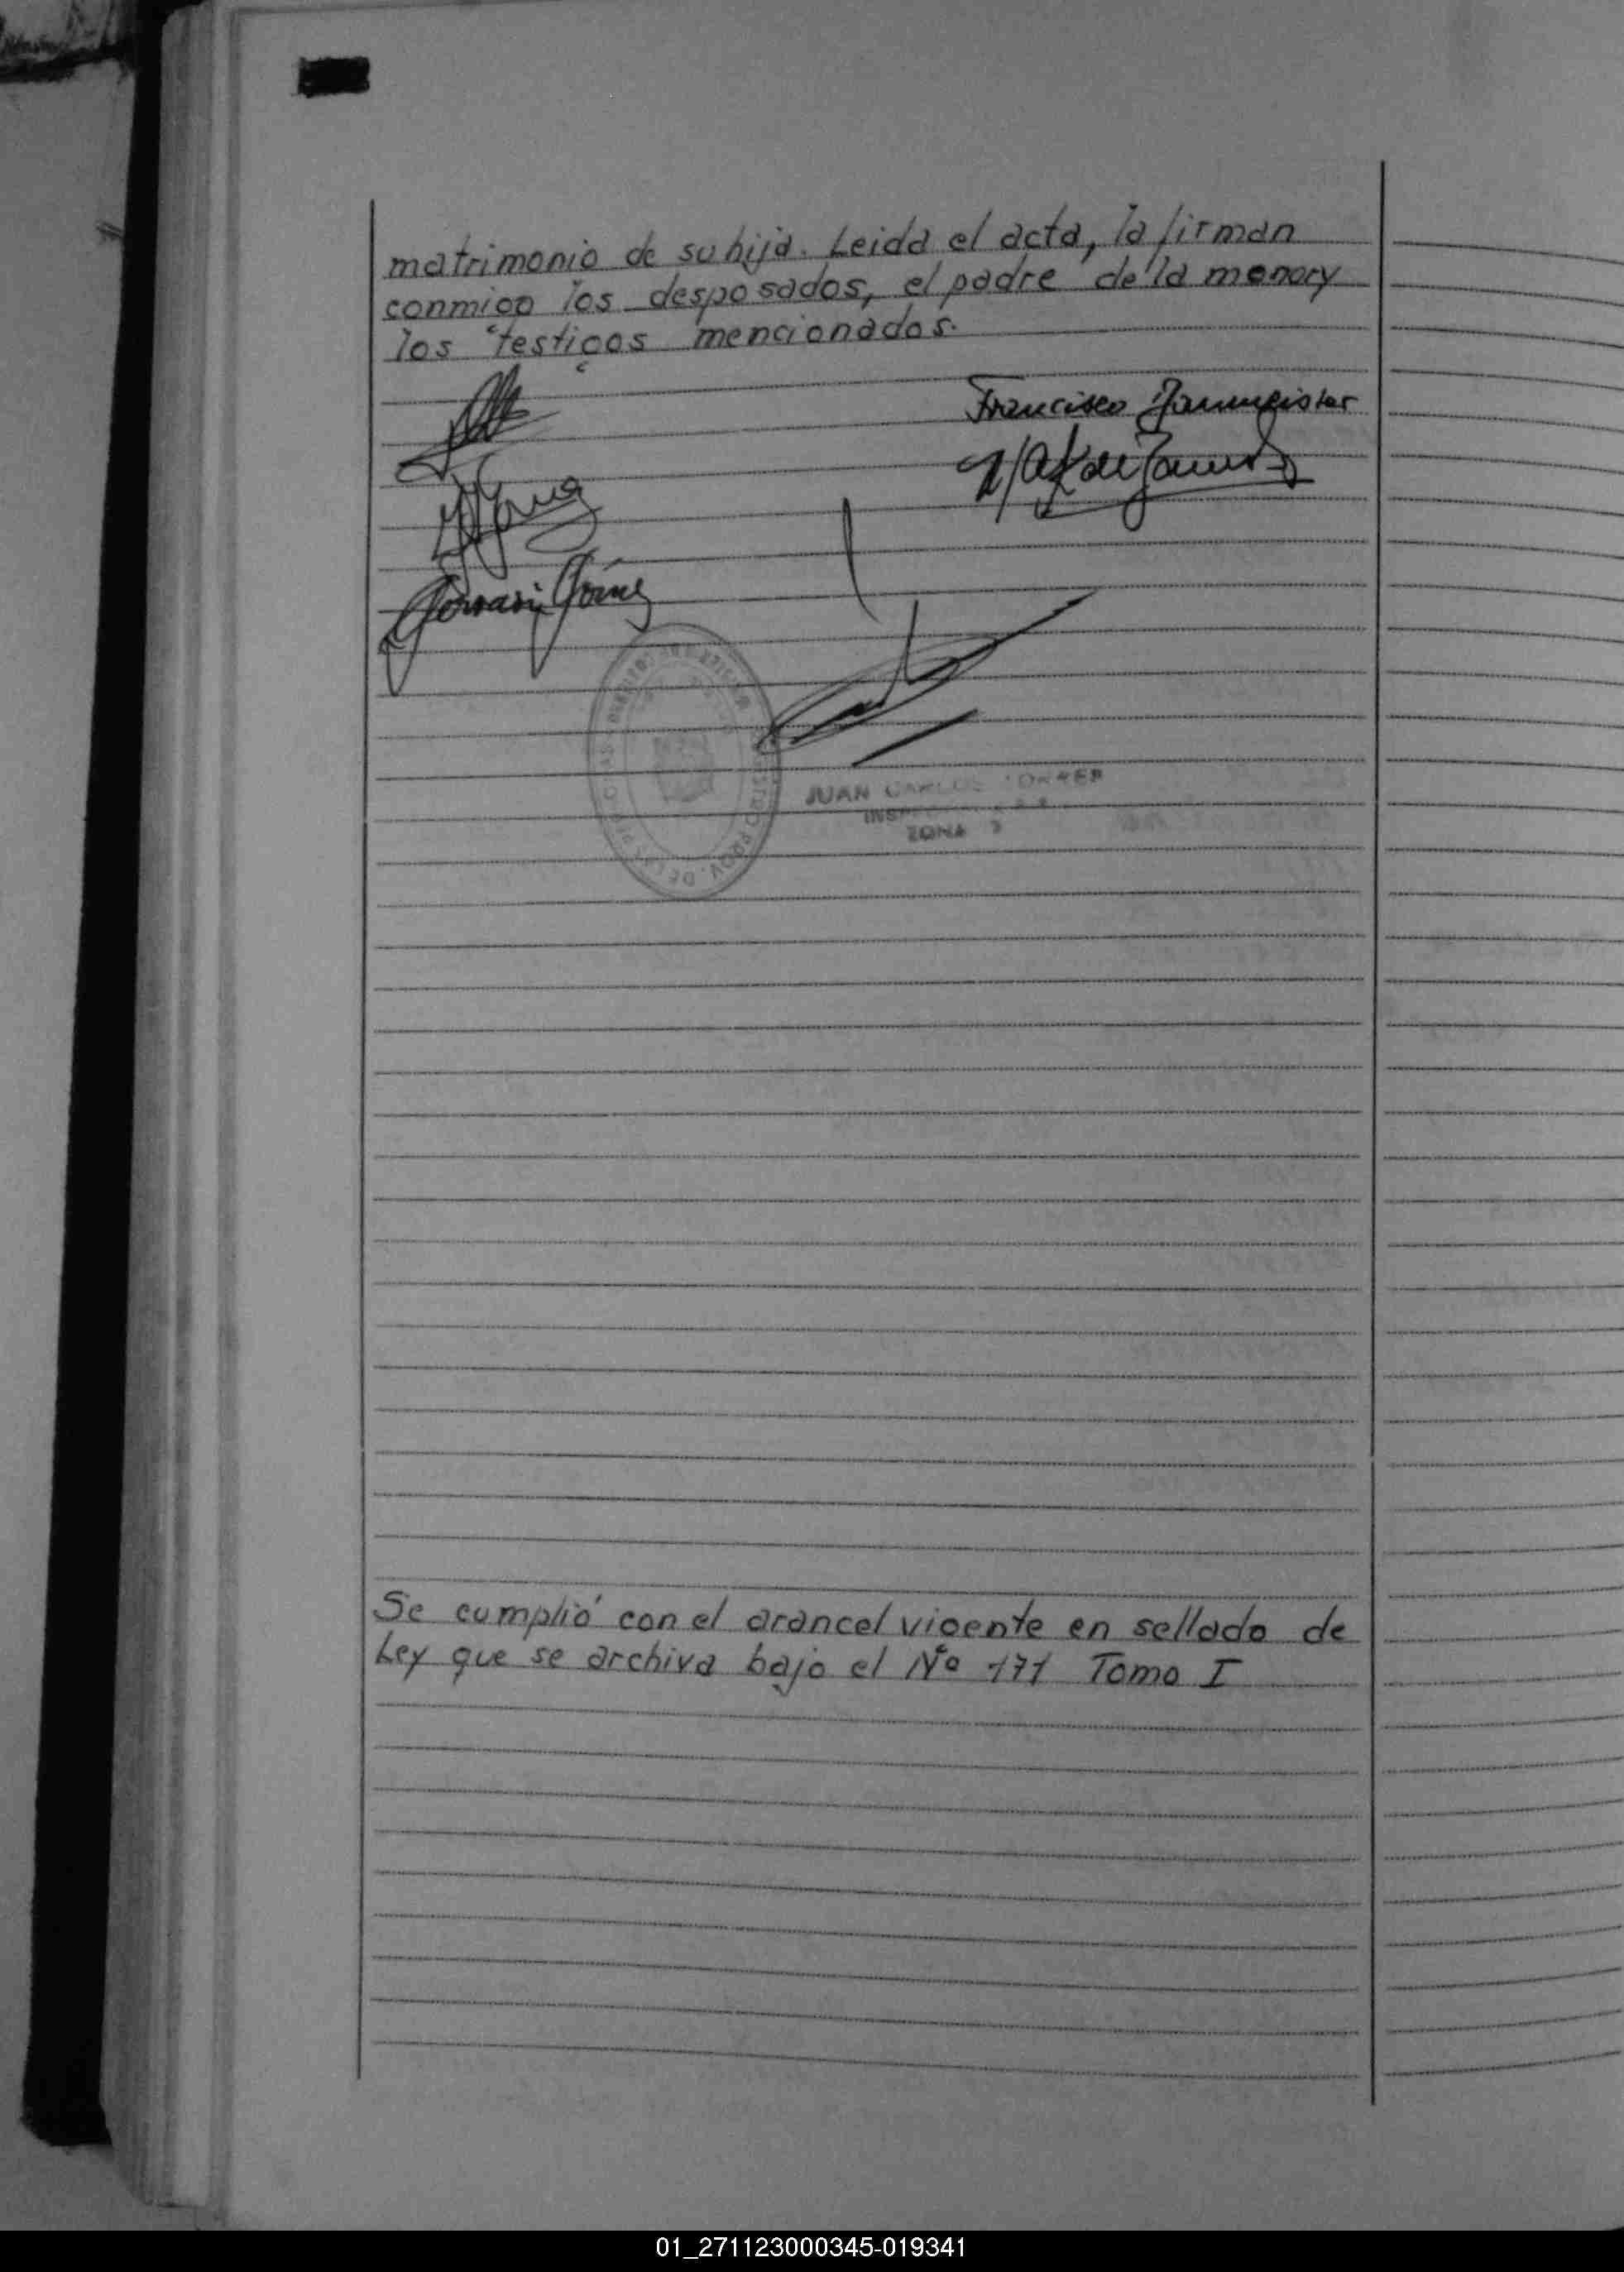 matrimonio de su hija. Leida el acta, la firman
conmigo los desposados, el padre de la menor y
los testigos mencionados.
Francisco
Gómez
JUAN CARLOS
ZONA
Se cumplió con el arancel vigente en sellado de
Ley que se archiva bajo el Nº 171 Tomo I
01_271123000345-019341